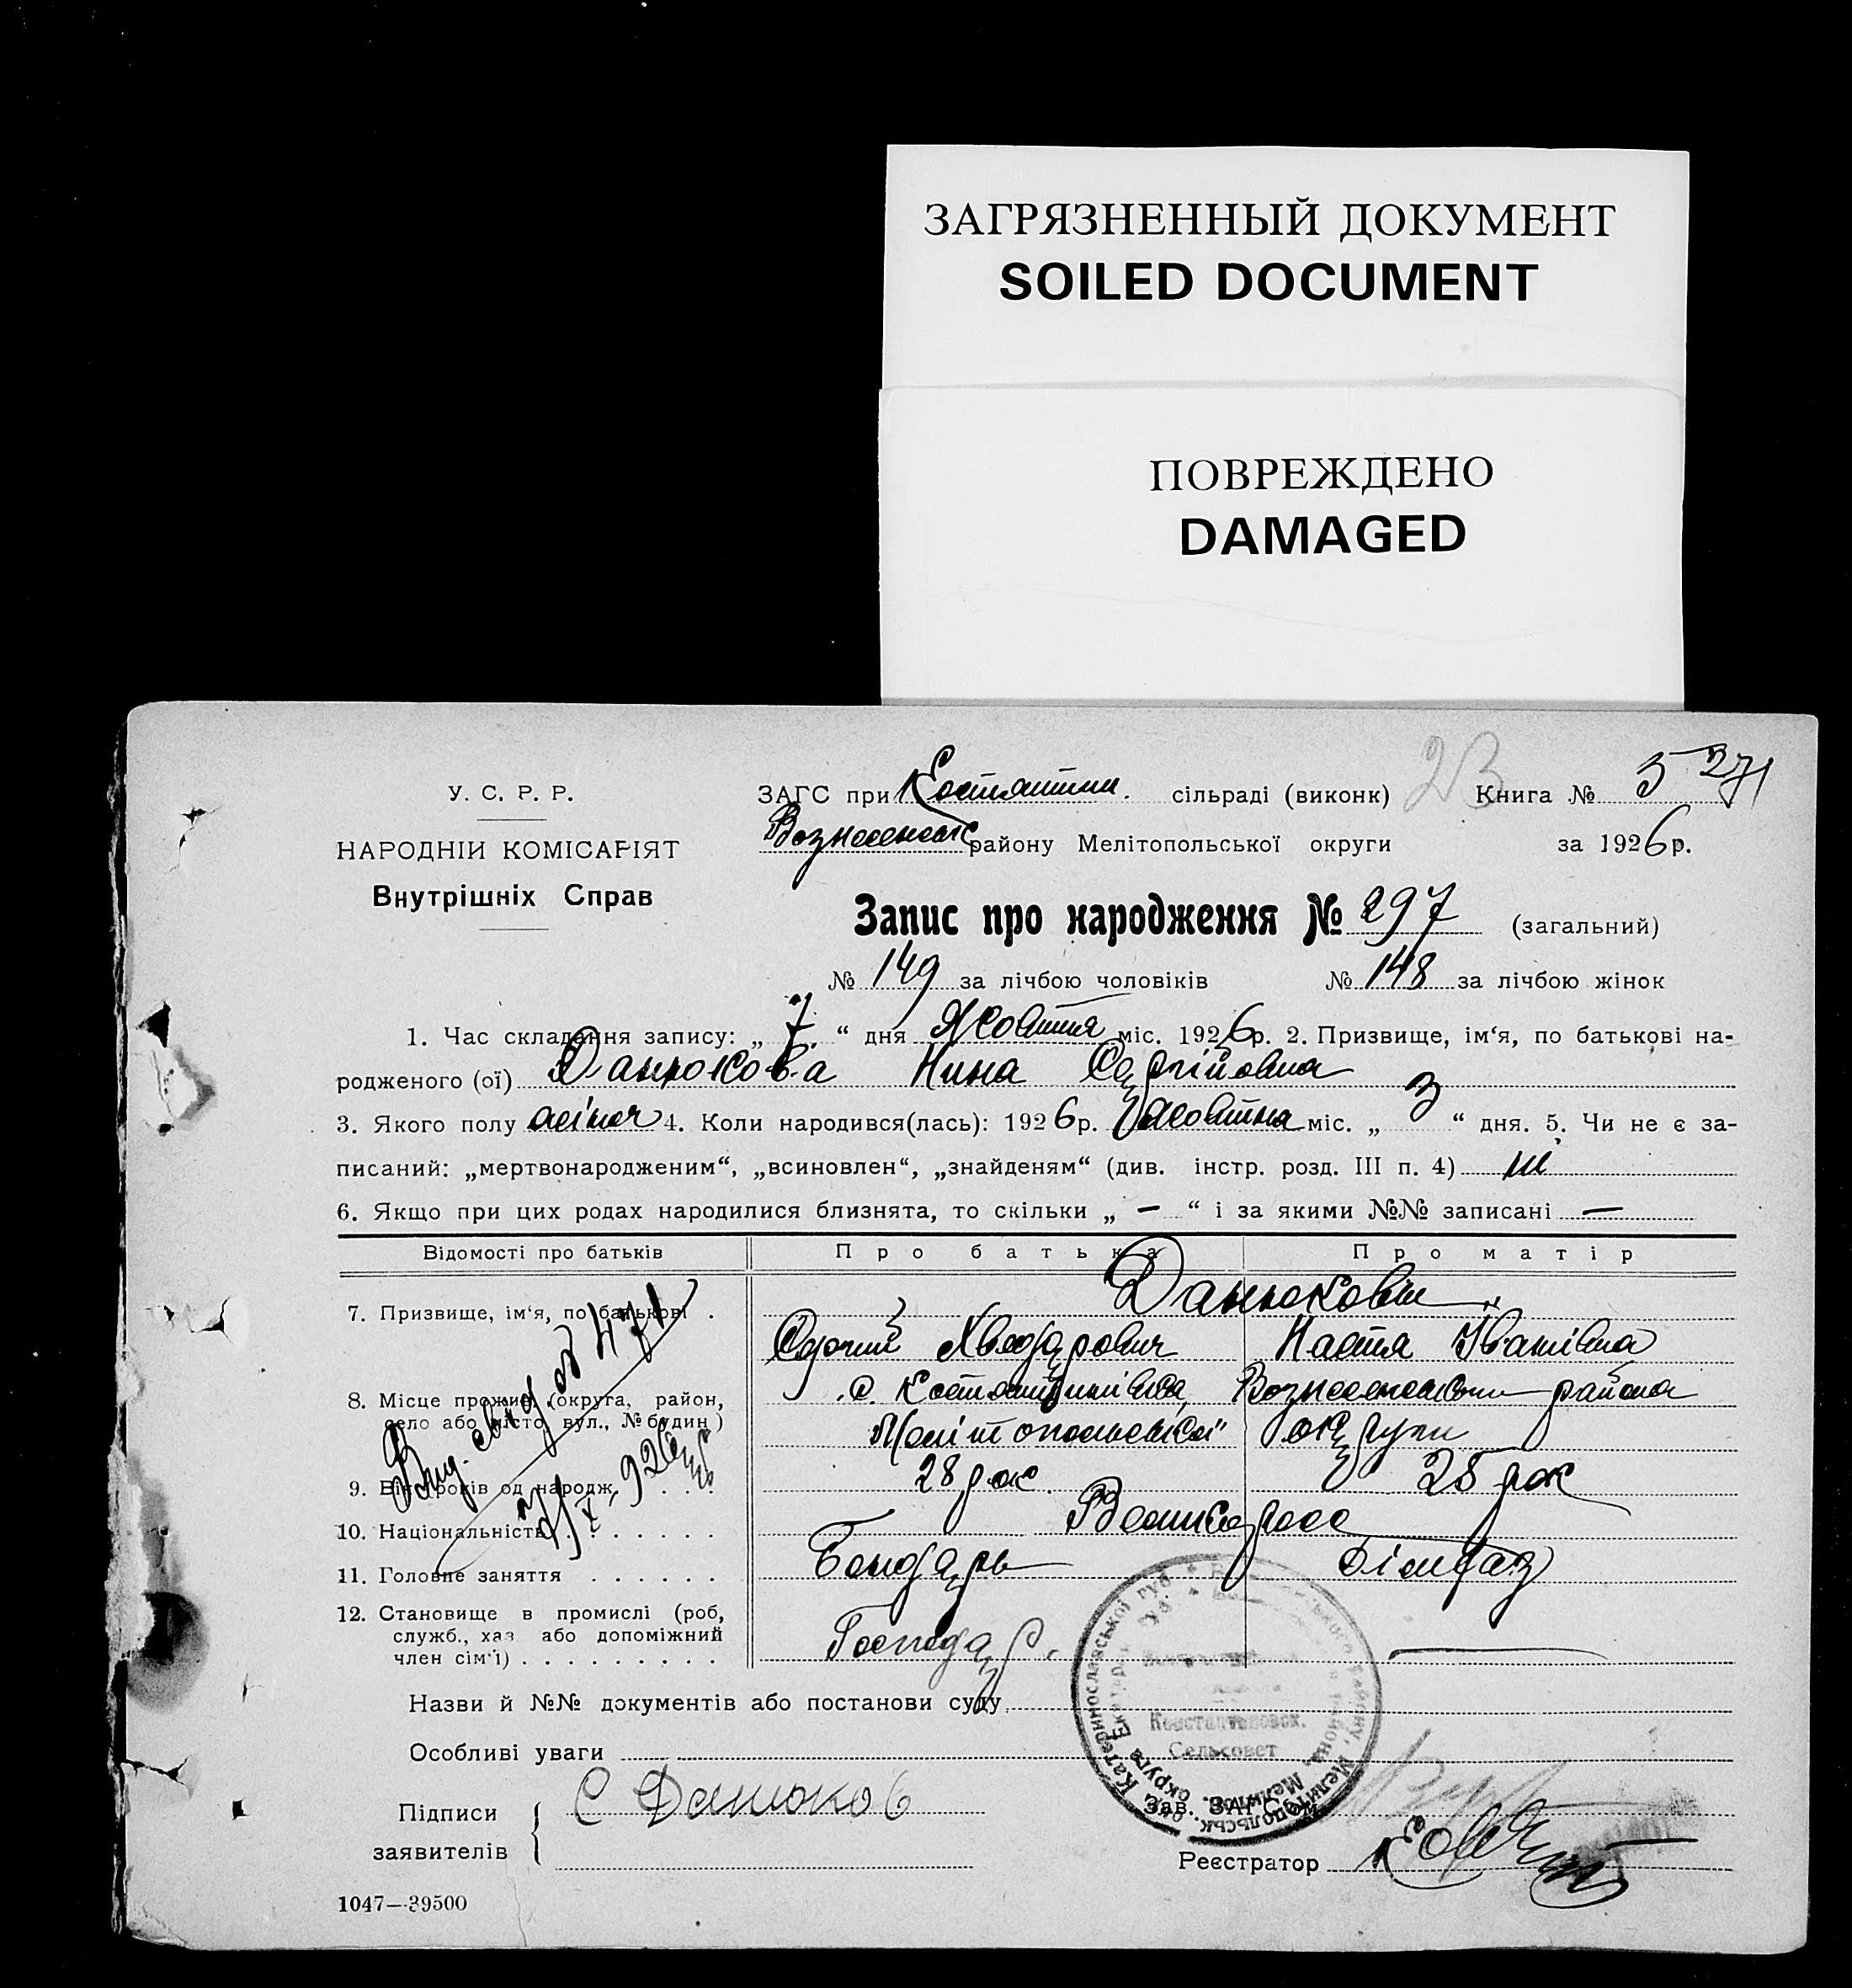 ЗАГРЯЗНЕННЫЙ ДОКУМЕНТ
SOILED DOCUMENT
ПОВРЕЖДЕНО
DAMAGED
У. С. Р. Р.
НАРОДНІЙ КОМІСАРІЯТ
Внутрішніх Справ
ЗАГС при Костянтин. сільраді (виконк) 23 Книга № 5 271
Вознесенськ району Мелітопольської округи за 1926 р.
Запис про народження № 297 (загальний)
№ 149 за лічбою чоловіків № 148 за лічбою жінок
1. Час складання запису: „ 7 “ дня Жовтня міс. 1926 р. 2. Призвище, ім‘я, по батькові на-
родженого (ої) Данюкова Нина Сергійовна
3. Якого полу жіноч 4. Коли народився(лась): 1926 р. Жовтня міс. „ 3 “ дня. 5. Чи не є за-
писаний: „мертвонародженим“, „всиновлен“, „знайденям“ (див. інстр. розд. III п. 4) ні
6. Якщо при цих родах народилися близнята, то скільки „ — “ і за якими №№ записані —
Відомості про батьків Про батька Про матір
7. Призвище, ім‘я, по батькові . Данюкови
Сергий Хведорович Настя Іванівна
8. Місце прожив. (округа, район, с. Костянтинівка, Вознесенського района
село або місто, вул., № будин) Мелітопольської округи
9. Вік (років од народж. . . . 28 рок. 28 рок
10. Національність . . . . . . Великорос
11. Головне заняття . . . . . . Бондарь
12. Становище в промислі (роб, Господар. —
служб., хаз або допоміжний
член сім‘ї) . . . . . . . . .
Вид. свид за 471
Назви й №№ документів або постанови суду
Особливі уваги
Константиновск.
Сельсовет
Підписи С Данюков Зав. ЗАГС‘ом
заявителів Реєстратор
1047—39500